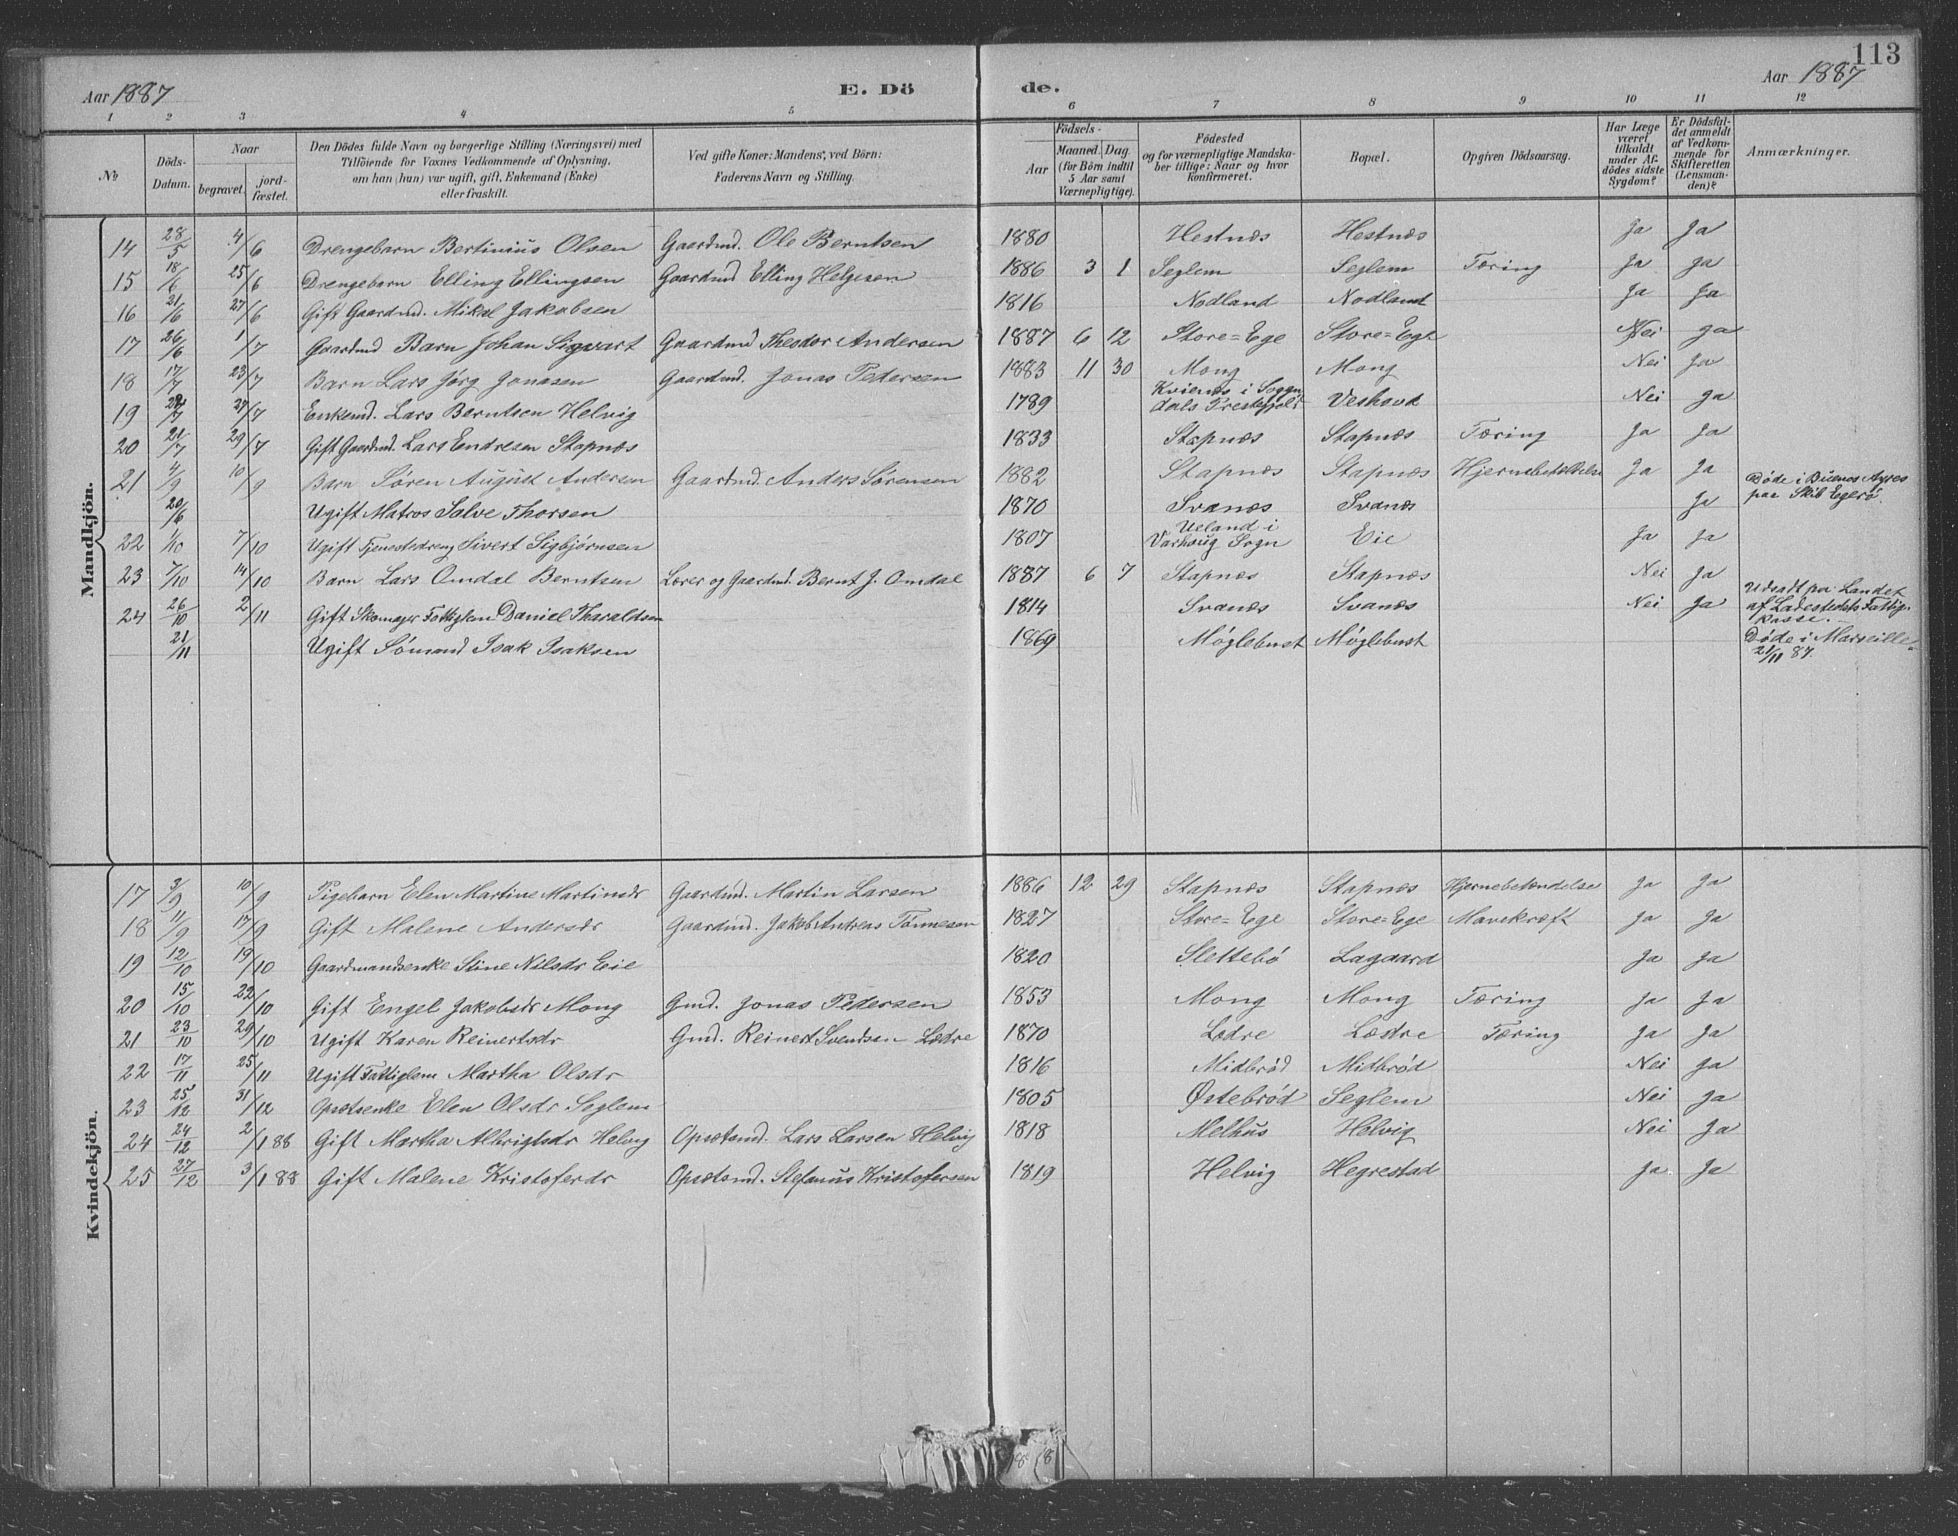 113
Aar 1887 E. Dö de. Aar 1887
1 2 3 4 5 6 7 8 9 10 11 12
No
Döds-Datum.
Naar
begravet.
jord-fæstet.
Den Dödes fulde Navn og borgerlige Stilling (Næringsvei) med
Tilföiende for Voxnes Vedkommende af Oplysning,
om han (hun) var ugift, gift, Enkemand (Enke)
eller fraskilt.
Ved gifte Koner: Mandens, ved Börn:
Faderens Navn og Stilling.
Födsels-
Aar
Maaned. Dag.
(for Börn indtil
5 Aar samt
Værnepligtige).
Födested
og for værnepligtige Mandska-
ber tillige: Naar og hvor
konfirmeret.
Bopæl.
Opgiven Dödsaarsag.
Har Læge
været
tilkaldt
under Af-
dödes sidste
Sygdom?
Er Dödsfal-
det anmeldt
af Vedkom-
mende for
Skifteretten
(Lensman-
den)?
Anmærkninger.
Mandkjön.
14 28/5 4/6 Drengebarn Bertinius Olsen Gaardmd. Ole Berntsen 1880 Hestnæs Hestnæs Ja Ja
15 18/6 25/6 Drengebarn Elling Ellingsen Gaardmd Elling Helgesen 1886 3 1 Seglem Seglem Tæring Ja Ja
16 21/6 27/6 Gift Gaardmd. Mikal Jakobsen 1816 Nodland Nodland Ja Ja
17 26/6 1/7 Gaardmd Barn Johan Sigvart Gaardmd Theodor Andersen 1887 6 12 Store=Ege Store=Ege Nei Ja
18 17/7 23/7 Barn Lars Jørg Jonasen Gaardmd. Jonas Pedersen 1883 11 30 Mong Mong Nei Ja
19 /7 27/7 Enkemd. Lars Berntsen Helvig 1789 i Soggn dals Prestegjeld Veshovd Nei Ja
20 21/7 29/7 Gift Gaardmd. Lars Endresen Stapnæs 1833 Stapnæs Stapnæs Tæring Ja Ja
21 4/9 10/9 Barn Søren August Andersen Gaardmd. Anders Sørensen 1882 Stapnæs Stapnæs Hjernebetændelse Ja Ja
20/6 Ugift Matros Salve Thorsen 1870 Svanæs Svanæs Ja Døde i Buenos Ayres paa Skib Egerø.
22 1/10 7/10 Ugift Tjenestedreng Sivert Sigbjørnsen 1807 Ueland i Varhoug Sogn Eie Ja Ja
23 7/10 14/10 Barn Lars Omdal Berntsen Lærer og Gaardmd. Bernt J. Omdal 1887 6 7 Stapnæs Stapnæs Nei Ja
24 26/10 2/11 Gift Skomager Fattiglem Daniel Tharaldsen 1814 Svanæs Svanæs Nei Ja Udsadt paa Landet af Ladestedets Fattigkasse.
21/11 Ugift Sømand Isak Isaksen 1869 Møglebust Møglebust Døde i Marseille 21/11 87.
Kvindekjön.
17 3/9 10/9 Pigebarn Elen Martine Martinsdr Gaardmd. Martin Larsen 1886 12 29 Stapnæs Stapnæs Hjernebetændelse Ja Ja
18 11/9 17/9 Gift Malene Andersdr Gaardmd. Jakob Andreas Tønnesen 1827 Store=Ege Store=Ege Mavekræft Ja Ja
19 12/10 19/10 Gaardmandsenke Stine Nilsdr Eie 1820 Slettebø Lagaard Ja Ja
20 15/10 22/10 Gift Engel Jakobsdr Mong Gmd. Jonas Pedersen 1853 Mong Mong Tæring Ja Ja
21 23/10 29/10 Ugift Karen Reinertsdr Gmd. Reinert Svendsen Lædre 1870 Lædre Læstre Tæring Ja Ja
22 17/11 25/11 Ugift Fattiglem Martha Olsdr 1816 Midbrød Midbrød Nei Ja
23 25/12 31/12 Opsætsenke Elen Olsdr Seglem 1805 Østebrød Seglem Nei Ja
24 24/12 2/1 88 Gift Martha Albrigtsdr Helvig Opsætsmd. Lars Larsen Helvig 1818 Melhus Helvig Nei Ja
25 27/12 3/1 88 Gift Malene Kristofersdr Opsætsmd. Stefanus Kristofersen 1819 Helvig Hegrestad Ja Ja